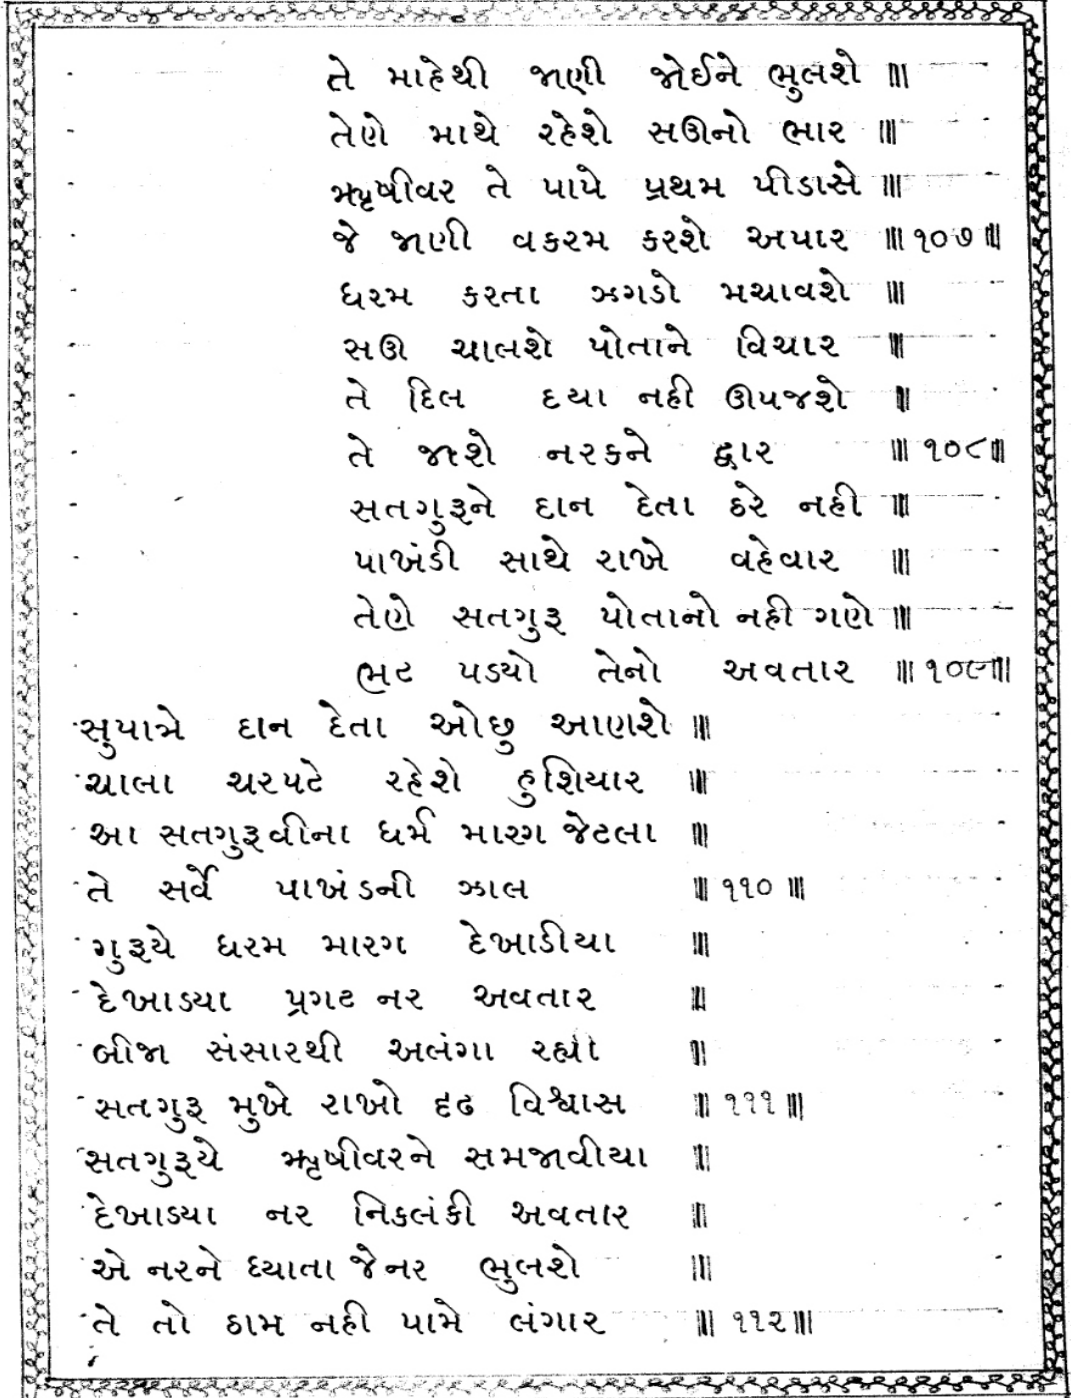 તે માહેથી જાણી જોઈને ભુલશે ॥
તેણે માથે રહેશે સઊનો ભાર ॥
ઋષીવર તે પાપે પ્રથમ પીડાસે ॥
જે જાણી વકરમ કરશે અપાર ॥ ૧૦૭ ॥
ધરમ કરતા ઝગડો મચાવશે ॥
સઊ ચાલશે પોતાને વિચાર ॥
તે દિલ દયા નહી ઊપજશે ॥
તે જાશે નરકને દ્વાર ॥ ૧૦૮ ॥
સતગુરૂને દાન દેતા ઠરે નહી ॥
પાખંડી સાથે રાખે વહેવાર ॥
તેણે સતગુરૂ પોતાનો નહી ગણે ॥
ભટ પડયો તેનો અવતાર ॥ ૧૦૯ ॥
સુપાત્રે દાન દેતા ઓછુ આણશે ॥
ચાલા ચરપટે રહેશે હુશિયાર ॥
આ સતગુરૂવીના ધર્મ મારગ જેટલા ॥
તે સર્વે પાખંડની ઝાલ ॥ ૧૧૦ ॥
ગુરૂયે ધરમ મારગ દેખાડીયા ॥
દેખાડયા પ્રગટ નર અવતાર ॥
બીજા સંસારથી અલંગા રહ્યો ॥
સતગુરૂ મુખે રાખો દૃઢ વિશ્વાસ ॥ ૧૧૧ ॥
સતગુરૂયે ઋષીવરને સમજાવીયા ॥
દેખાડયા નર નિકલંકી અવતાર ॥
એ નરને ધ્યાતા જેનર ભુલશે ॥
તે તો ઠામ નહી પામે લંગાર ॥ ૧૧૨ ॥